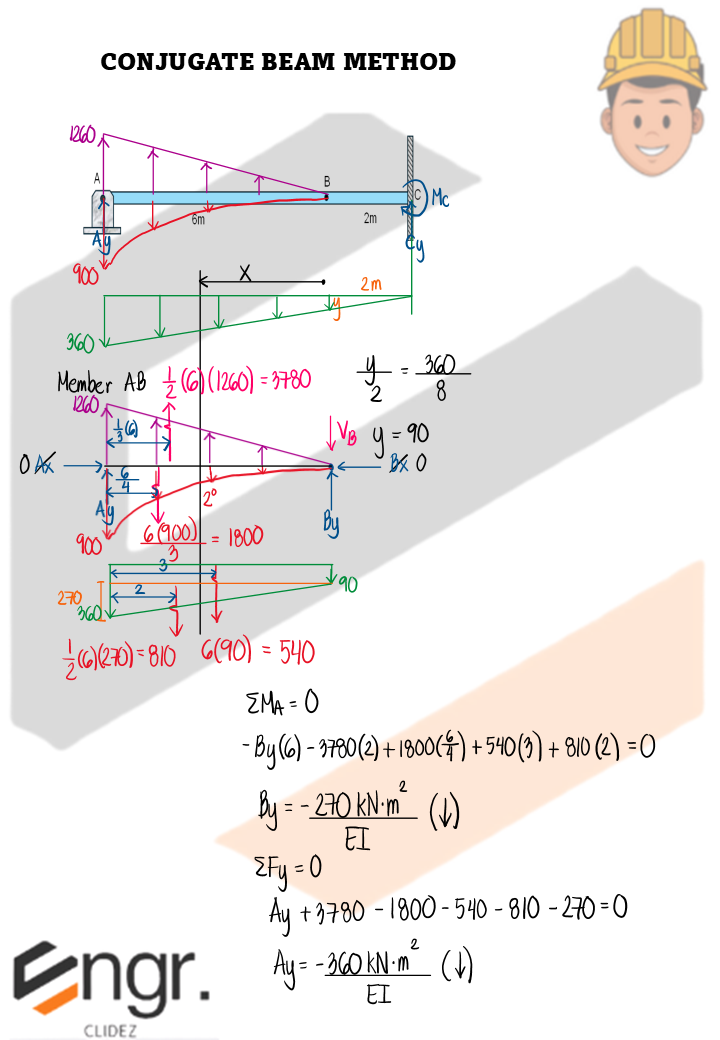 CONJUGATE BEAM METHOD
1260
A
B
C
Mc
6m
2m
Ay
Cy
900
X
2m
y
360
Member AB
1/2 (6)(1260) = 3780
y/2 = 360/8
1260
1/3(6)
V_B
y = 90
0 Ax
Bx 0
6/4
Ay
2°
By
900
6(900)/3 = 1800
3
90
270
2
360
1/2 (6)(270) = 810
6(90) = 540
ΣM_A = 0
- By(6) - 3780(2) + 1800(6/4) + 540(3) + 810(2) = 0
By = - 270 kN·m²/EI (↓)
ΣFy = 0
Ay + 3780 - 1800 - 540 - 810 - 270 = 0
Ay = - 360 kN·m²/EI (↓)
Engr.
CLIDEZ